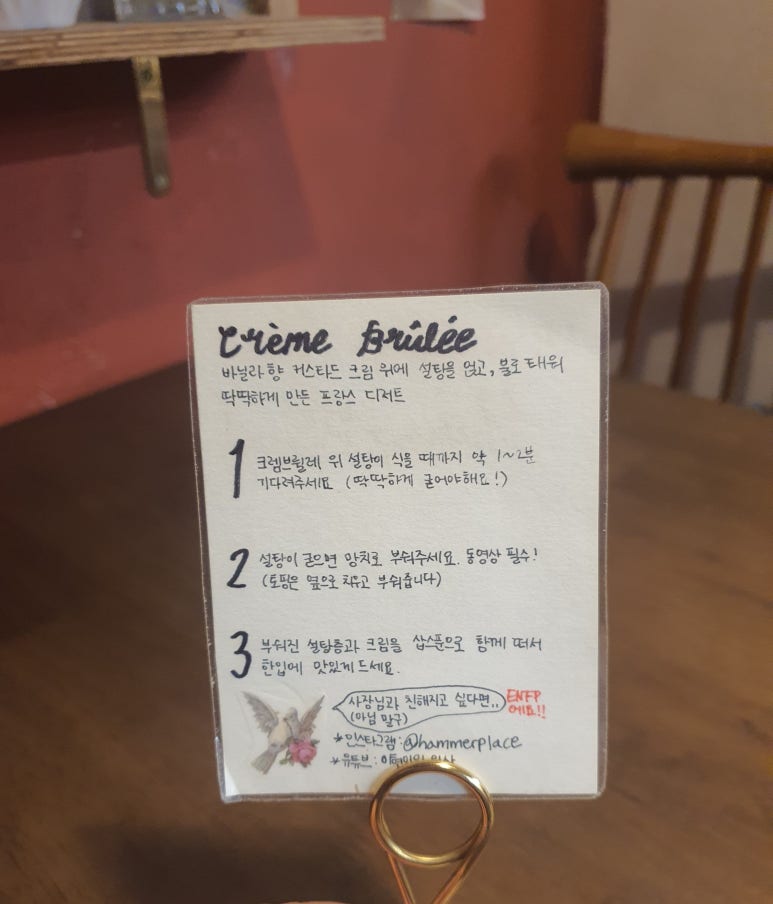 Crème Brûlée
바닐라향 커스타드 크림 위에 설탕을 얹고, 불로 태워
딱딱하게 만든 프랑스 디저트
1 크렘브륄레 위 설탕이 식을 때까지 약 1~2분
기다려주세요 (딱딱하게 굳어야해요!)
2 설탕이 굳으면 망치로 부숴주세요. 동영상 필수!
(토핑은 옆으로 치우고 부숴줍니다)
3 부숴진 설탕층과 크림을 삽스푼으로 함께 떠서
한입에 맛있게드세요.
사장님과 친해지고 싶다면..
(아님 말구)
ENFP
에요!!
*인스타그램:@hammerplace
*유튜브: